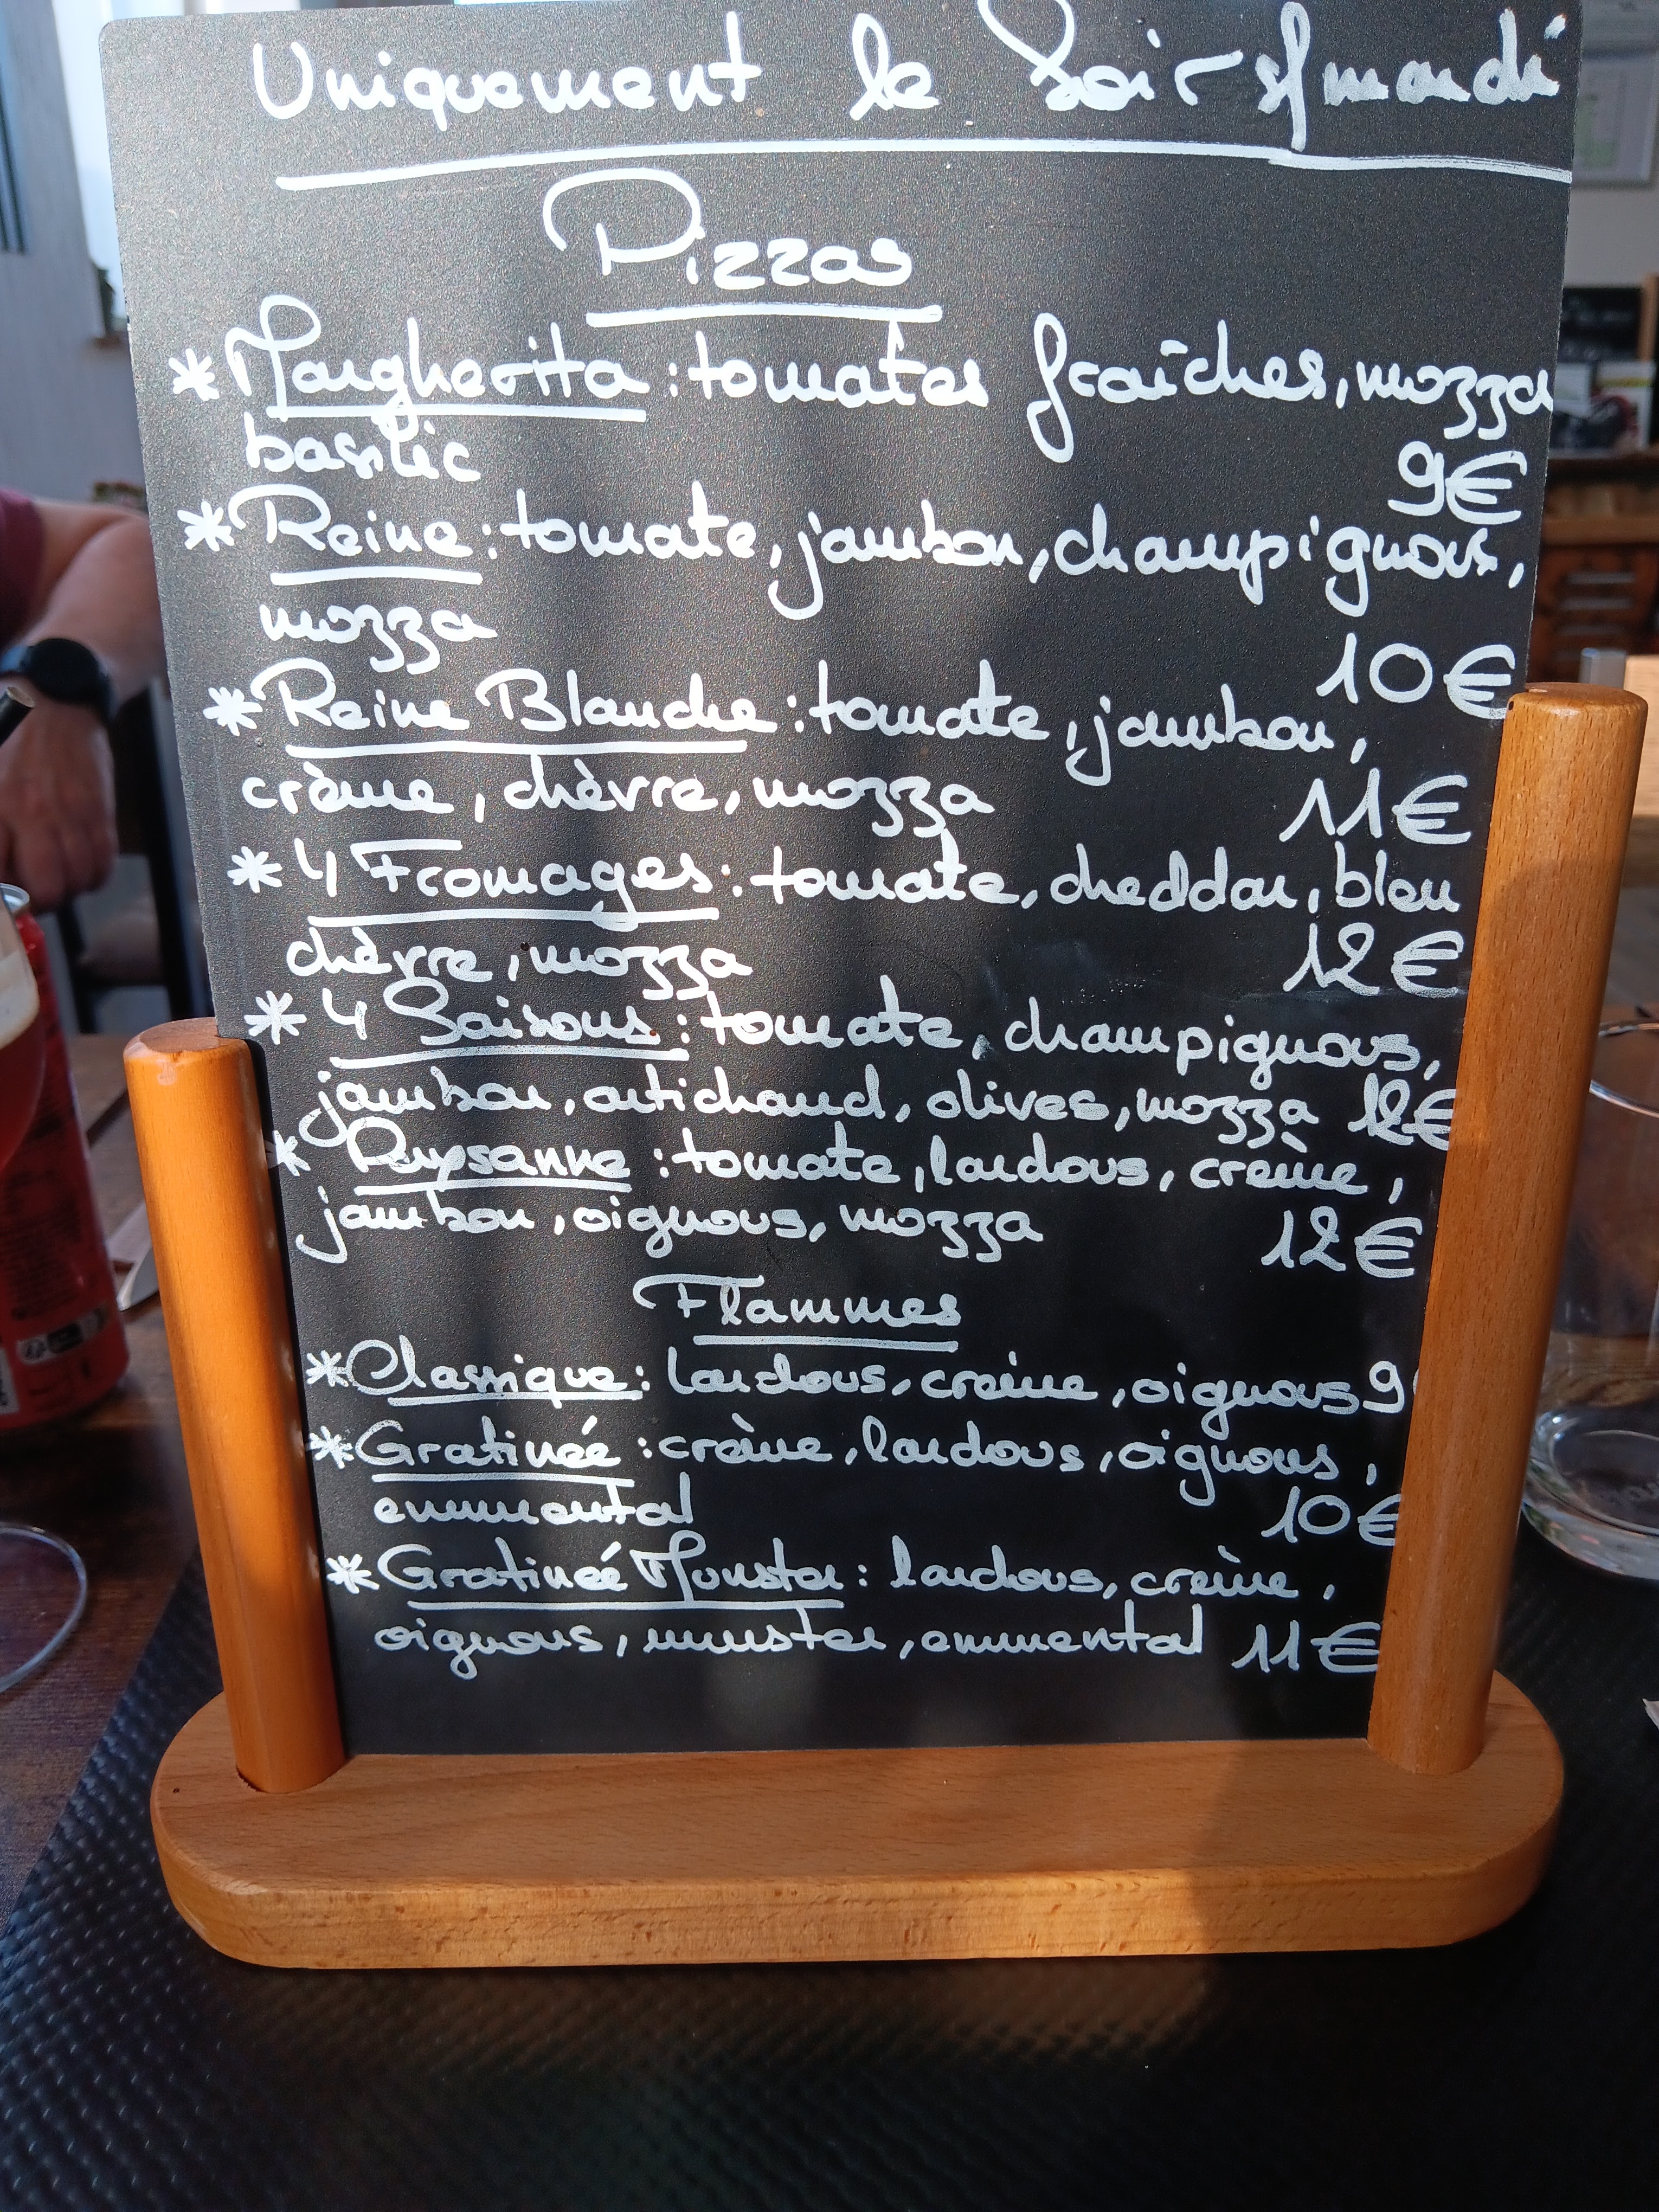 Uniquement le Soir sf mardi
Pizzas
* Margherita : tomates fraîches, mozza
basilic 9€
* Reine : tomate, jambon, champignons,
mozza 10€
* Reine Blanche : tomate, jambon,
crème, chèvre, mozza 11€
* 4 Fromages : tomate, cheddar, bleu
chèvre, mozza 12€
* 4 Saisons : tomate, champignons,
jambon, artichaud, olives, mozza 12€
* Paysanne : tomate, lardons, crème,
jambon, oignons, mozza 12€
Flammes
* Classique : lardons, crème, oignons 9
* Gratinée : crème, lardons, oignons,
emmental 10€
* Gratinée Munster : lardons, crème,
oignons, munster, emmental 11€